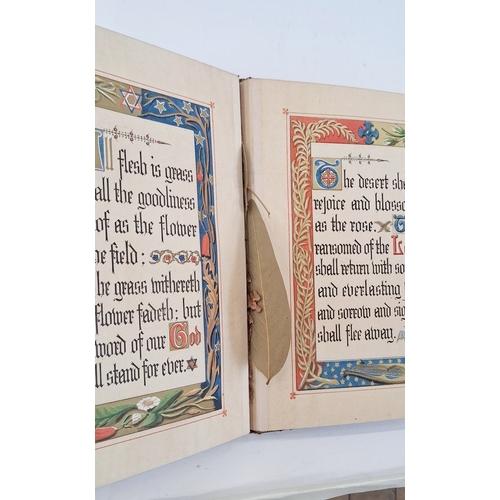 All flesh is grass
all the goodliness
of as the flower
he field:
he grass withereth
flower fadeth: but
word of our God
ll stand for ever.
The desert sha
rejoice and blosso
as the rose.
ransomed of the L
shall return with so
and everlasting
and sorrow and sig
shall flee away.